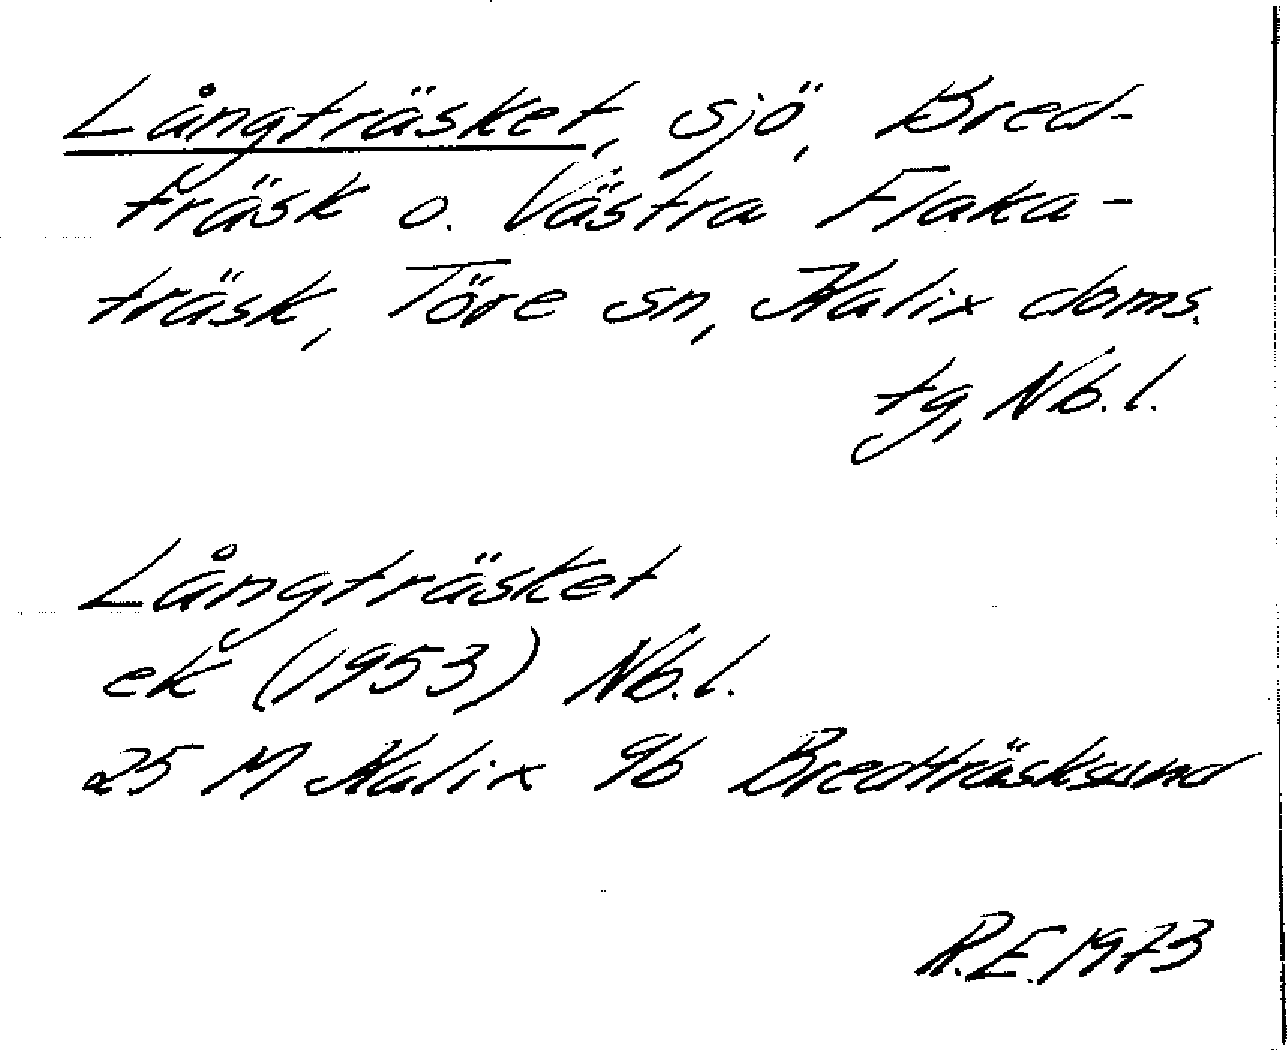 Långträsket, sjö, Bred-
träsk o. Västra Flaka-
träsk, Töre sn, Kalix doms.
tg, Nb.l.
Långträsket
ek (1953) Nb.l.
25 M Kalix 9b Bredträsksund
R.E. 1973